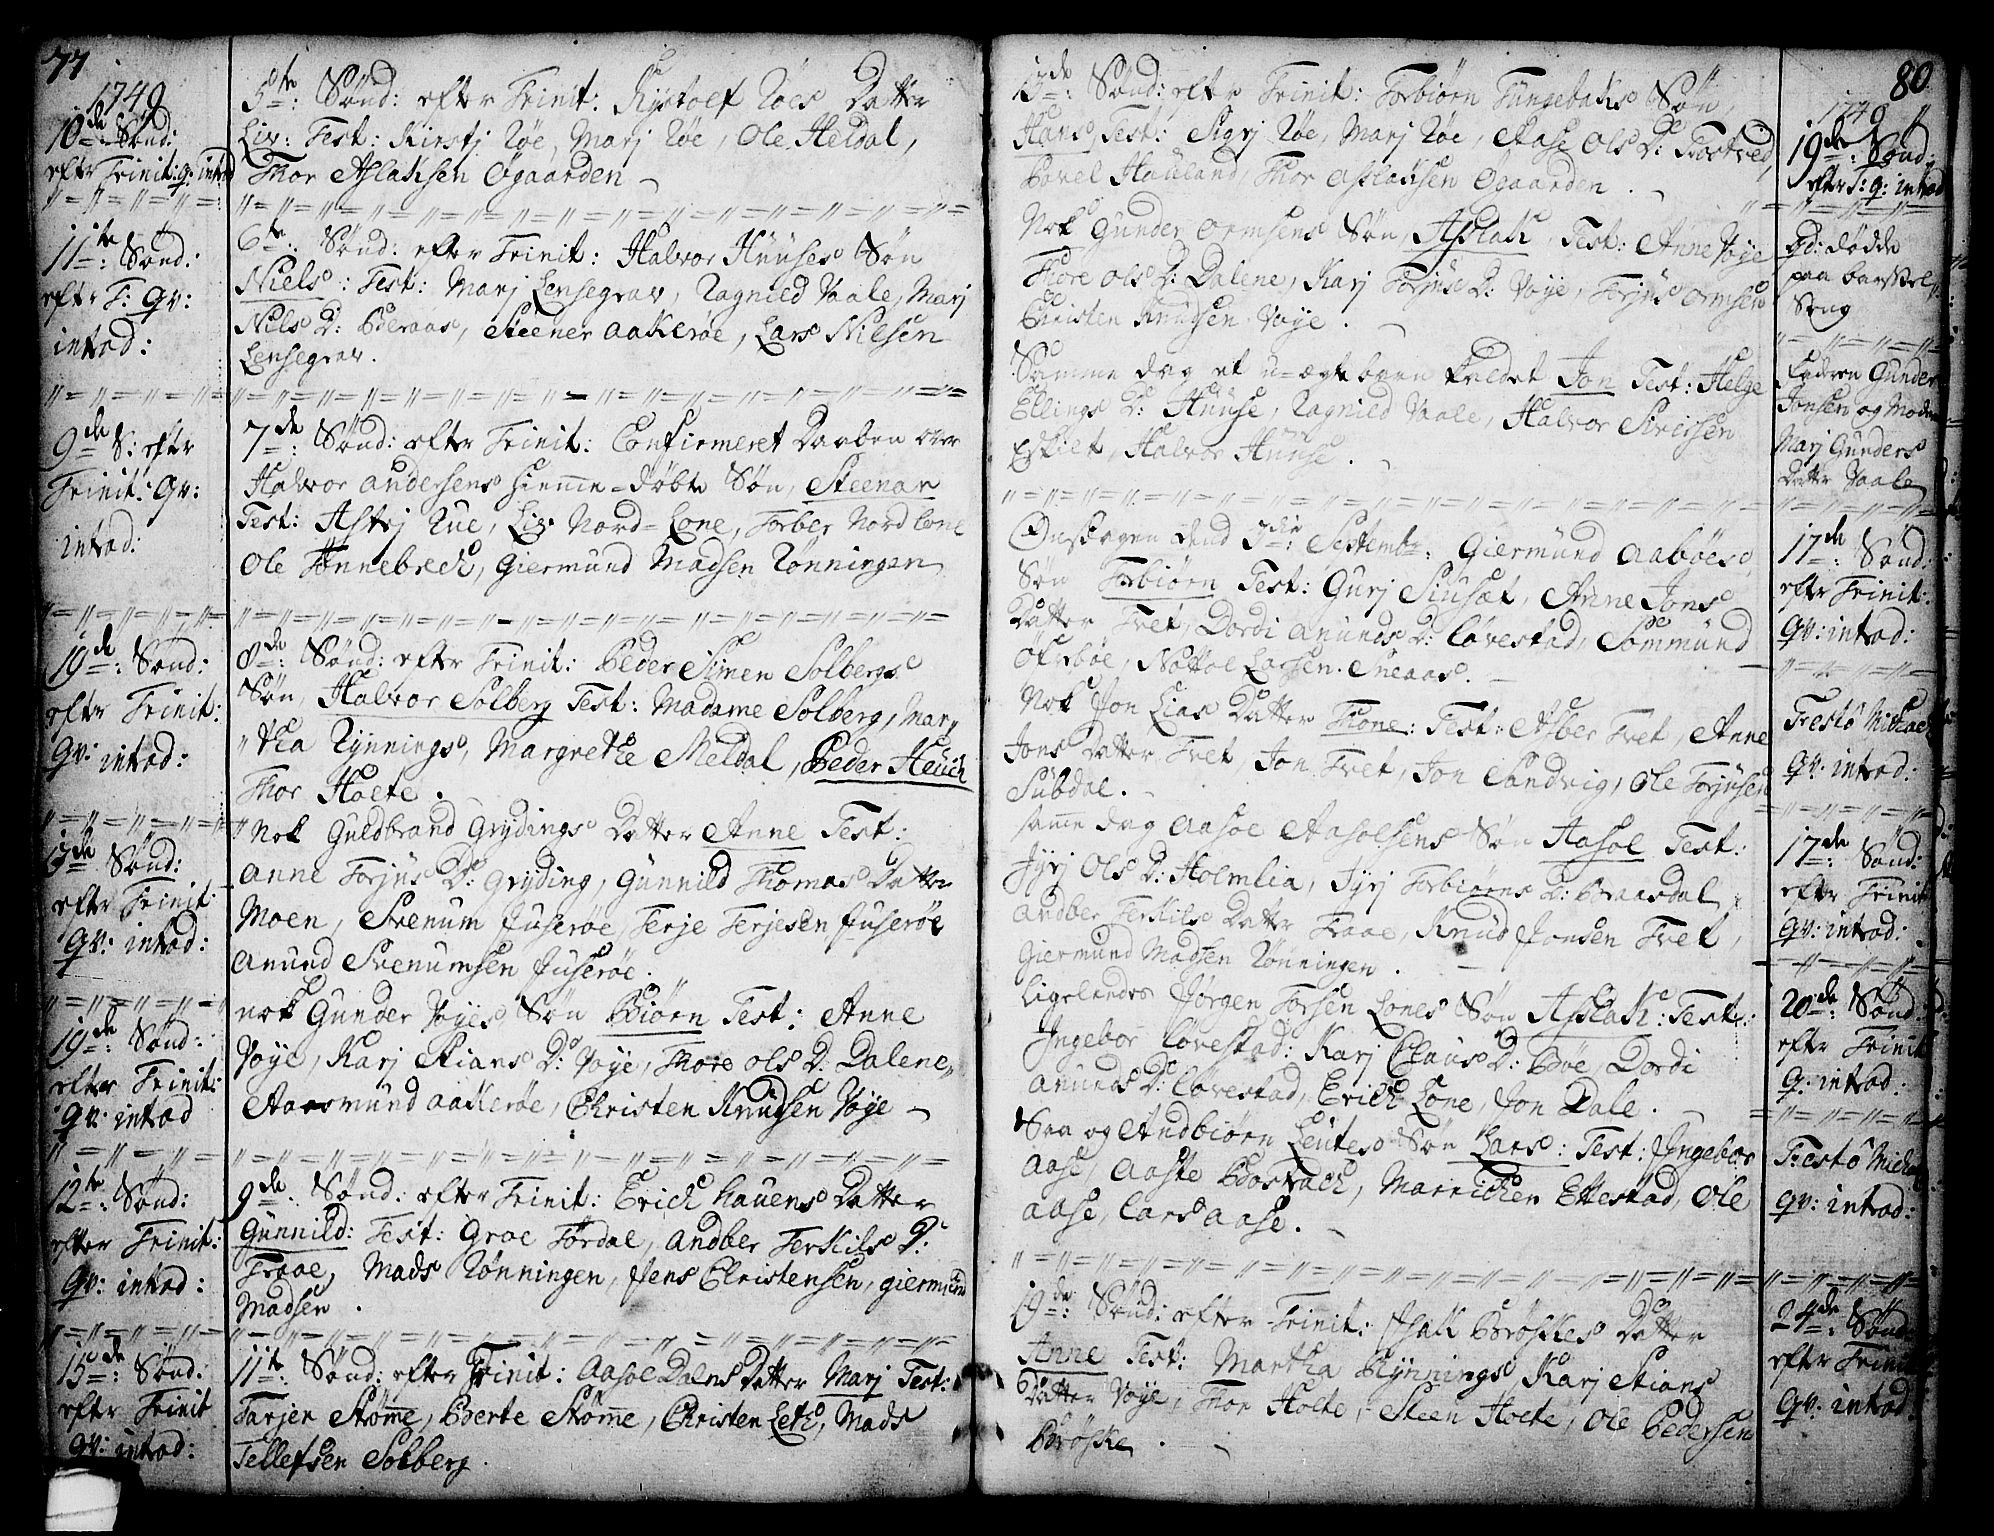 77
1749
10de Sønd:
efter Trinit: q: introd
11te: Sønd:
eftr T: qv:
introd:
9de S: eftr
Trinit: qv:
introd:
10de: Sønd:
eftr Trinit:
qv: introd:
13de Sønd:
eftr Trinit:
qv: introd:
19de: Sønd:
eftr Trinit:
qv: introd
12te: Sønd:
eftr Trinit:
qv: introd:
15de: Sønd:
eftr Trinit
qv: introd:
5te: Sønd: efter Trinit: Røes Datter
Liv: Test: Kirstj Røe, Marj Røe, Ole Heldal,
Thor Aslaksen Øgaarden
6te: Sønd: efter Trinit: Halvor Huuses Søn
Niels: Test: Marj Lensegrav, Ragnild Vaale, Marj
Nils D: Bderaas, Steener Aakerøe, Lars Nilsen
Lensegrav.
7de: Sønd: efter Trinit: Confirmeret Daaben over
Halvor Andersens hiemme-døbte Søn, Steenar
Test: Astrj Rue, Liv Nord-Lone, Torber Nord Lone
Ole Tonnebrech, Giermund Madsen Rønningen
8de: Sønd: eftr Trinit: Peder Simen Solbergs
Søn, Halvor Solberg Test: Madame Solberg, Mar,
"tha Rynnings, Margrethe Meldal, Peder Heuch
Thor Holte.
"Nok Guldbrand Grydings Datter Anne Test:
Anne Torjus D: Gryding, Gunnild Thomas Datter
Moen, Svenum Juserøe, Terje Terjesen Juserøe
Anund Svenumsen Juserøe.
nok Gunder Voyes Søn Biørn Test: Anne
Voye, Karj Stians D: Voye, Thore Ols D: Dalene,
Aasmund Aakerøe, Christen Knudsen Voye
9de: Sønd: efter Trinit: Erich Hauens Datter
Gunnild: Test: Groe Tordal, Andber Terkils D:
Traae, Mads Rønningen, Jens Christensen, Giermund
Madsen.
11te: Sønd: efter Trinit: Aasoe Dalens Datter Marj Test:
Tarjer Stømme, Berte Stømme, Christen Leth, Mads
Tellefsen Solberg.
13de: Sønd: efter Trinit: Torbiørn Tungebaks Søn
Hans, Test: Sigrj Røe, Marj Røe, Aase Ols D: Trostved,
Povel Hauland, Thor Aslaksen Øgaarden.
Nok Gunder Ormsens Søn, Aslak, Test: Anne Voye
Thore Ols D: Dalene, Karj Torjus D: Voye, Torjus Ormsen
Christen Knudsen Voye.
Samme dag et u-ægte barn kaldet Jon Test: Helge
Ellings D: Huuse, Ragnild Vaale, Halvor Siversen
Eskilt, Halvor Huuse.
Onsdagen dend 3die: Septembr: Giermund Aabøes
Søn Torbiørn Test: Gurj Siusæt, Anne Jons
Datter Tvet, Dordi Anunds D: Løvestad, Sommund
Økebøe, Nottoe Larsen Sneaas.
Nok Jon Lias Datter Thone: Test: Asber Tvet, Anne
Jons Datter Tvet, Jon Tvet, Jon Sandvig, Ole Torjusen
Subdal.
samme dag Aasoe Aasolsens Søn Aasol Test:
Jyrj Ols D: Holmlia, Jyrj Torbiørns D: Braasdal,
Andber Terkils Datter Traae, Knud Jonsen Tvet,
Giermund Madsen Rønningen.
Ligeledes Jørgen Torsen Lones Søn Aslak: Test:
Ingebor Løvestad, Karj Claus D: Bøe, Dordi
Anunds D: Løvestad, Erich Lone, Jon Dale.
Saa og Andbiørn Leutes Søn Lars: Test: Ingebor
Aase, Aaste Bosvach, Marrichen Ettestad, Ole
Aase, Lars Aase.
19de: Sønd: efter Trinit: Isak Brøskes Datter
Anne Test: Martha Rynnings, Karj Stians
Datter Voye, Thor Holte, Steen Holte, Ole Pedersen
Brøske.
80
1749
19de: Sønd:
efter T: q: introd
qd: dødde
paa barsel
Seng
Faderen Gunder
Jonsen og Moder
Marj Gunders
Datter Vaale
17de: Sønd:
eftr Trinit:
qv: introd:
Festo Michael
qv: introd:
17de: Sønd:
eftr Trinit
qv: introd:
20de: Sønd:
eftr Trinit
q: introd:
Festo Micha
qv: introd:
24de: Sønd
eftr Trinit
qv: introd: